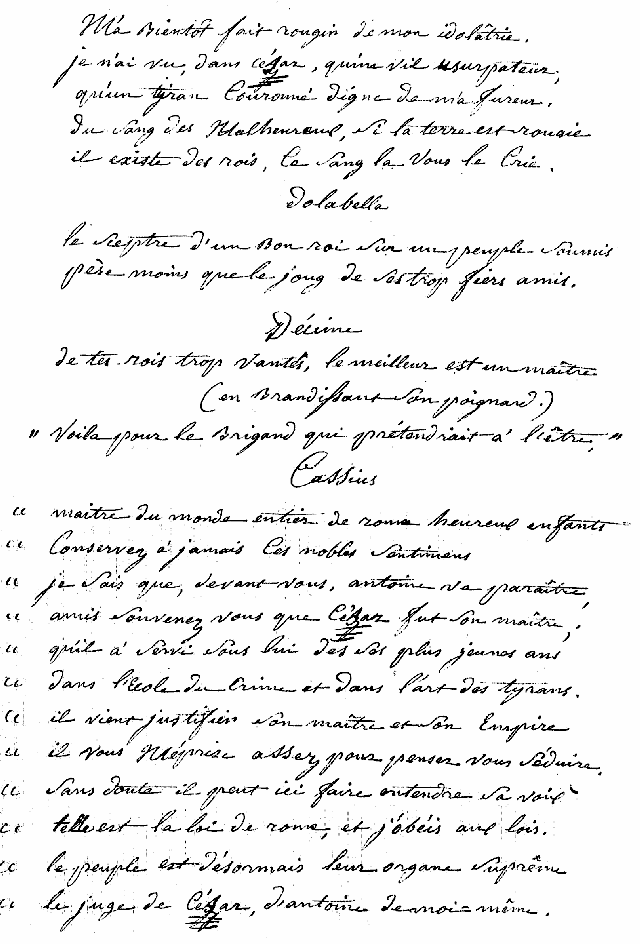 M'a Bientôt fait rougir de mon idolâtrie.
je n'ai vu, dans César, qu'un vil usurpateur,
qu'un tyran Couronné digne de ma fureur.
du Sang des Malheureux, Si la terre est rougie
il existe des rois, Ce Sang la Vous le Crie.
dolabella
le Sceptre d'un Bon roi Sur un peuple Soumis
pèse moins que le joug de Ses trop fiers amis.
Décime
de tes rois trop Vantés, le meilleur est un maître
(en Brandissant Son poignard.)
" Voila pour le Brigand qui prétendrait à l'être, "
Cassius
" maitre du monde entier de rome heureux enfants
" Conservez à jamais Ces nobles Sentimens
" je Sais que, devant vous, antoine va paraître,
" amis Souvenez vous que César fut Son maître,
" qu'il à Servi Sous lui dès Ses plus jeunes ans
" dans l'Ecole du Crime et dans l'art des tyrans.
" il vient justifier Son maître et Son Empire
" il vous Méprise assez pour penser vous Séduire,
" Sans doute il peut ici faire entendre Sa voix
" telle est la loi de rome, et j'obéis aux lois.
" le peuple est désormais leur organe Suprême
" le juge de César, d'antoine de moi-même.